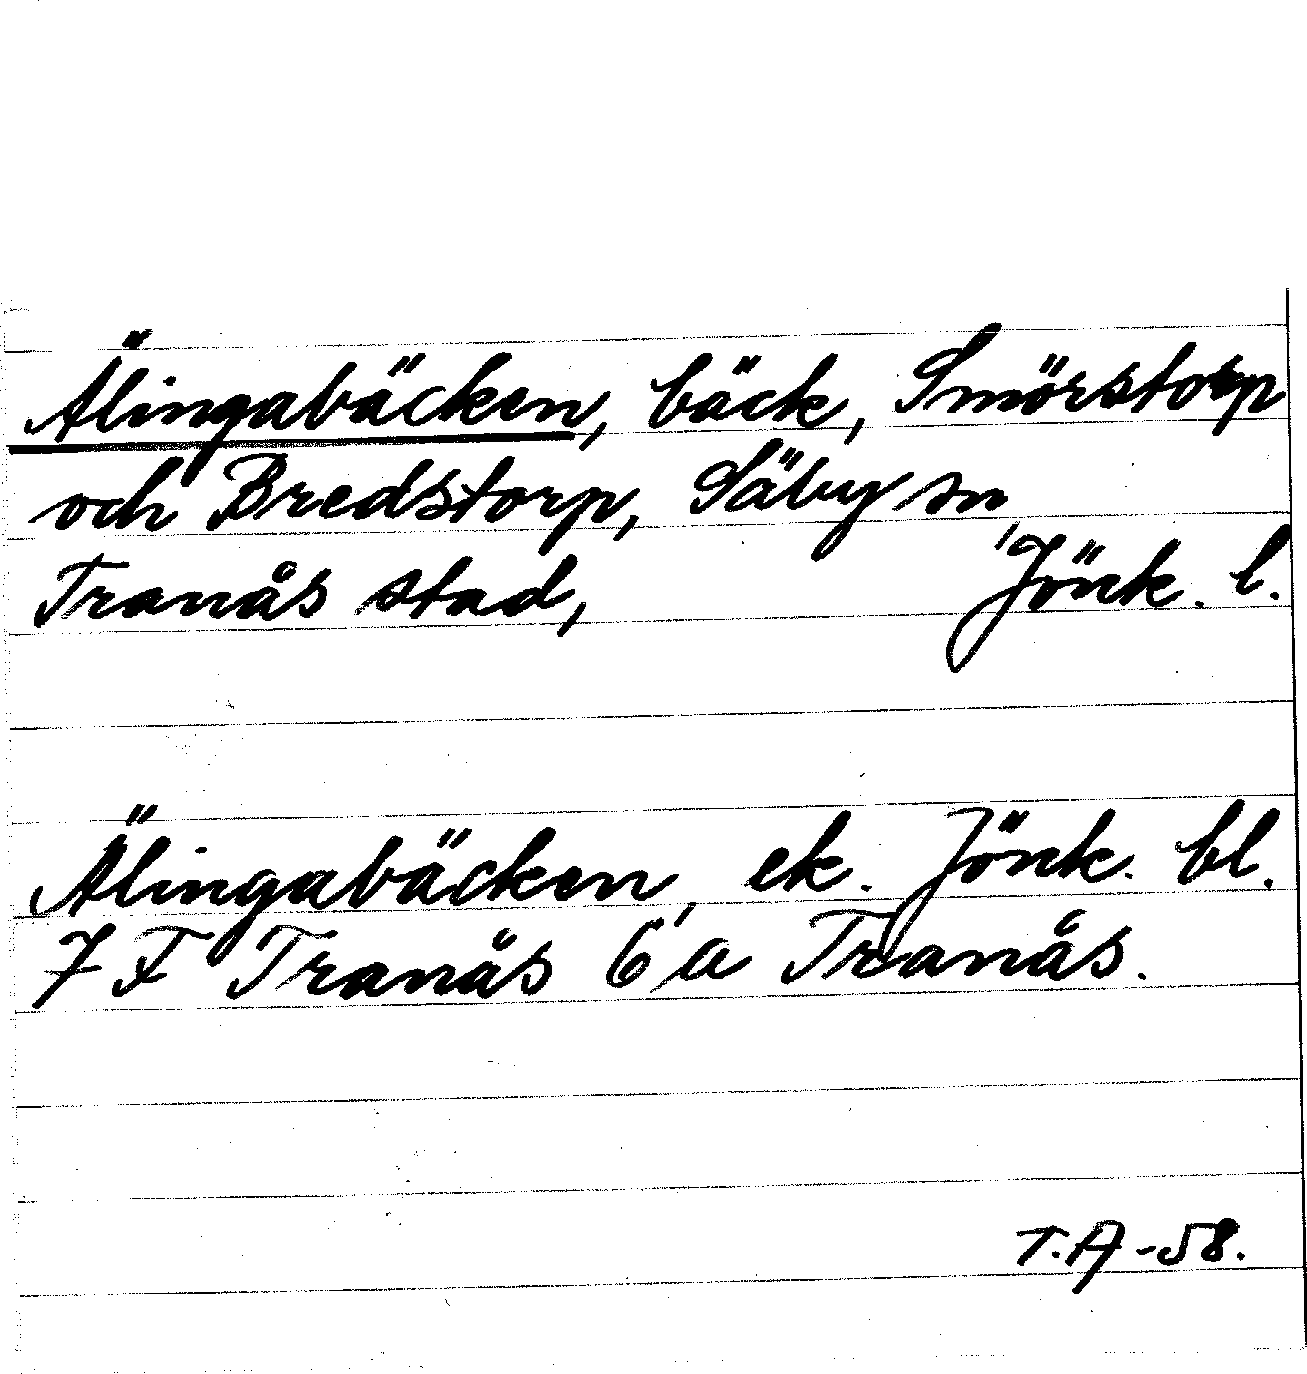 Älingabäcken, bäck, Smörstorp
och Bredstorp, Säby sn,
Tranås stad, Jönk. l.
Älingabäcken, ek. Jönk. bl.
7 F Tranås 6 a Tranås.
T.A -58.